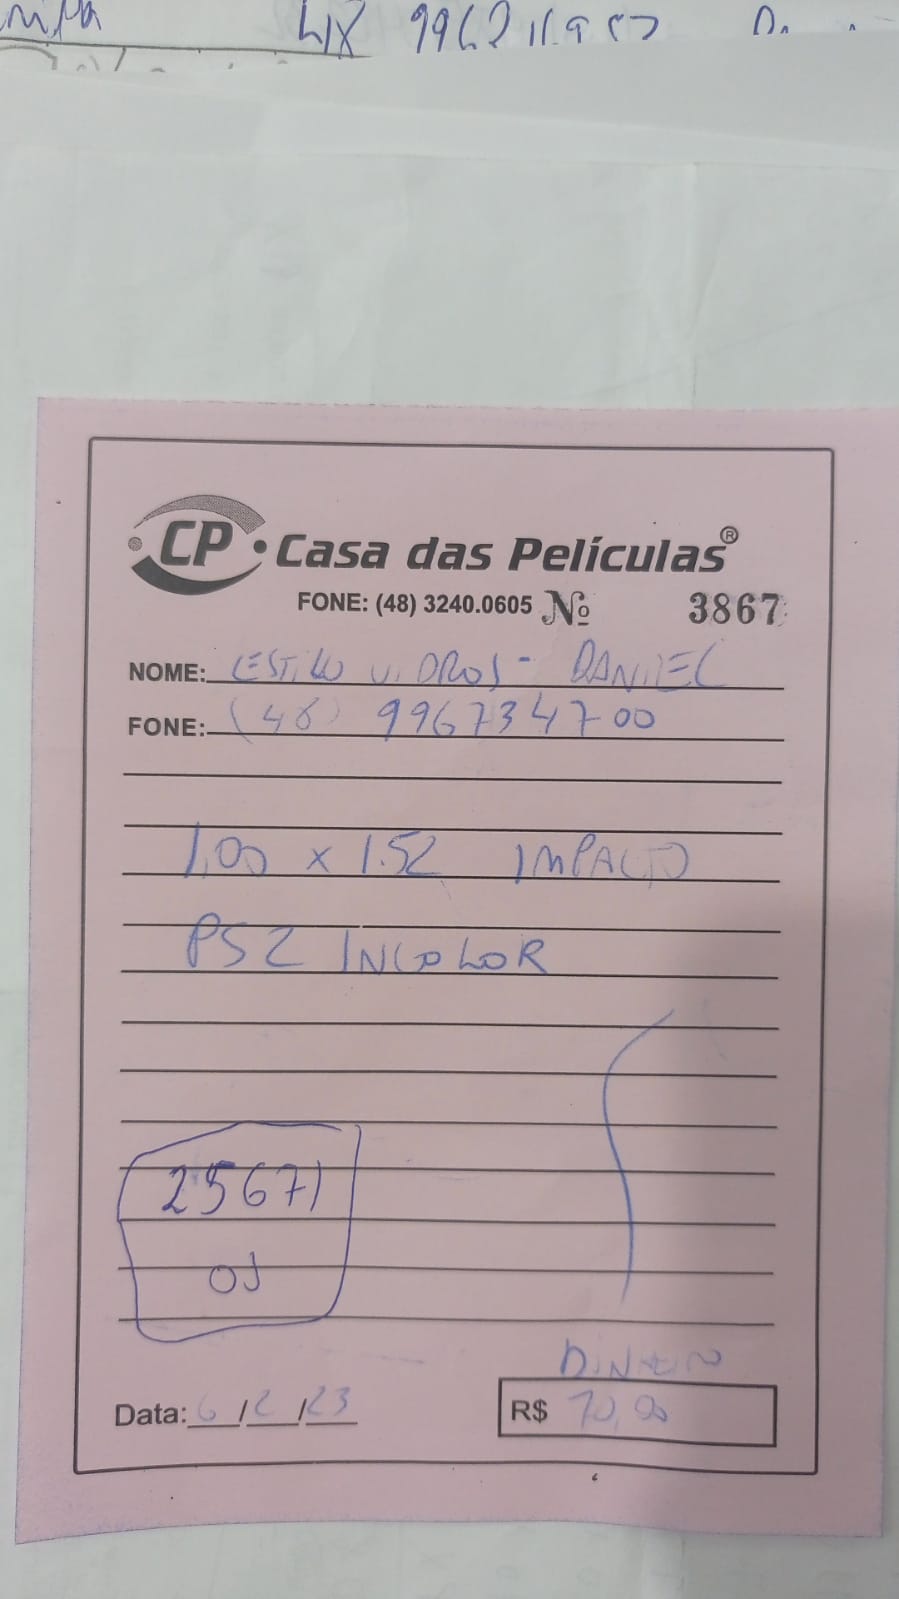 48
CP • Casa das Películas®
FONE: (48) 3240.0605 Nº 3867
NOME: ESTILO VIDROS - DANIEL
FONE: (48) 996734700
1,00 x 1.52 IMPACTO
PS2 INCOLOR
25671
OS
DINHEIRO
Data: 6/2/23 R$ 70,00